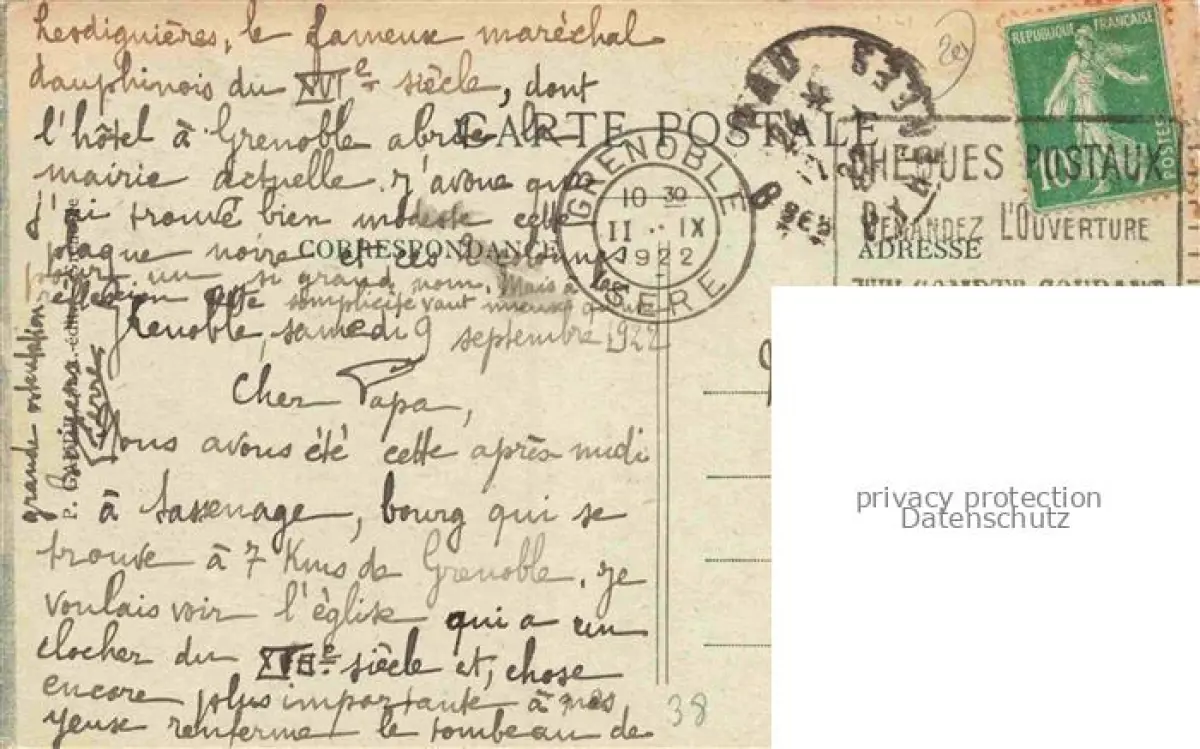 Lesdiguières, le fameux maréchal
dauphinois du XVIe siècle, dont
l'hôtel à Grenoble abrite la
mairie actuelle. J'avoue que
j'ai trouvé bien modeste cette
plaque noire et ces colonnes
pour un si grand nom. Mais à la
réflexion cette simplicité vaut mieux qu'une
grande ostentation.
Pierre
Grenoble, samedi 9 septembre 1922
Cher Papa,
Nous avons été cette après midi
à Sassenage, bourg qui se
trouve à 7 Kms de Grenoble, je
voulais voir l'église qui a un
clocher du siècle et, chose
encore plus importante à mes
yeux renferme le tombeau de
CARTE POSTALE
CORRESPONDANCE
ADRESSE
GRENOBLE
10 30
11 IX
1922
ISERE
PAU
CHEQUES POSTAUX
DEMANDEZ L'OUVERTURE
REPUBLIQUE FRANÇAISE
10
POSTES
38
privacy protection
Datenschutz